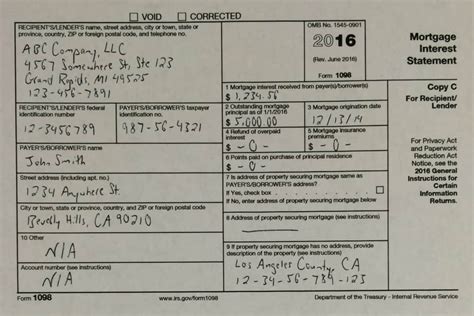 ☐ VOID ☐ CORRECTED
RECIPIENT'S/LENDER'S name, street address, city or town, state or
province, country, ZIP or foreign postal code, and telephone no.
ABC Company, LLC
4567 Somewhere St, Ste 123
Grand Rapids, MI 49525
123-456-7891
OMB No. 1545-0901
2016
(Rev. June 2016)
Form 1098
Mortgage
Interest
Statement
1 Mortgage interest received from payer(s)/borrower(s)
$ 1,234.56
Copy C
For Recipient/
Lender
RECIPIENT'S/LENDER'S federal
identification number
12-3456789
PAYER'S/BORROWER'S taxpayer
identification no.
987-56-4321
2 Outstanding mortgage
principal as of 1/1/2016
$ 5,000.00
3 Mortgage origination date
12/13/14
4 Refund of overpaid
interest
$ -0-
5 Mortgage insurance
premiums
$ -0-
For Privacy Act
and Paperwork
Reduction Act
Notice, see the
2016 General
Instructions for
Certain
Information
Returns.
PAYER'S/BORROWER'S name
John Smith
6 Points paid on purchase of principal residence
$ -0-
Street address (including apt. no.)
1234 Anywhere St.
7 Is address of property securing mortgage same as
PAYER'S/BORROWER'S address?
If Yes, check box
If No, enter address of property securing mortgage below
City or town, state or province, country, and ZIP or foreign postal code
Beverly Hills, CA 90210
8 Address of property securing mortgage (see instructions)
10 Other
N/A
9 If property securing mortgage has no address, provide
description of the property (see instructions)
Los Angeles County, CA
12-34-56-784-123
Account number (see instructions)
N/A
Form 1098
www.irs.gov/form1098
Department of the Treasury - Internal Revenue Service